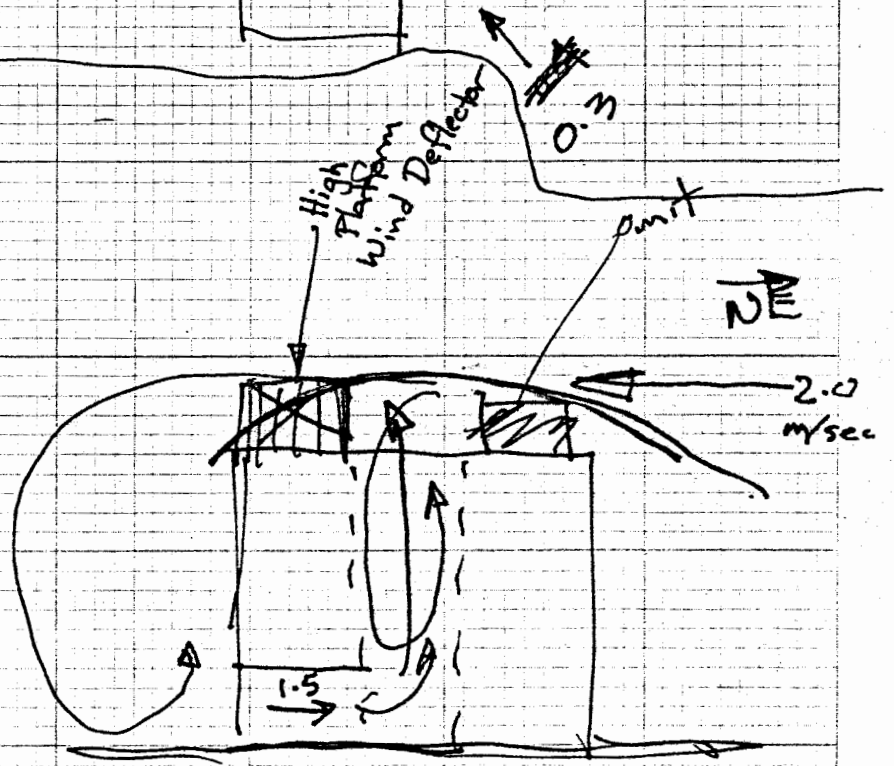 0.3
High
Platform
Wind Deflector
Omit
NE
2.0
m/sec
1.5